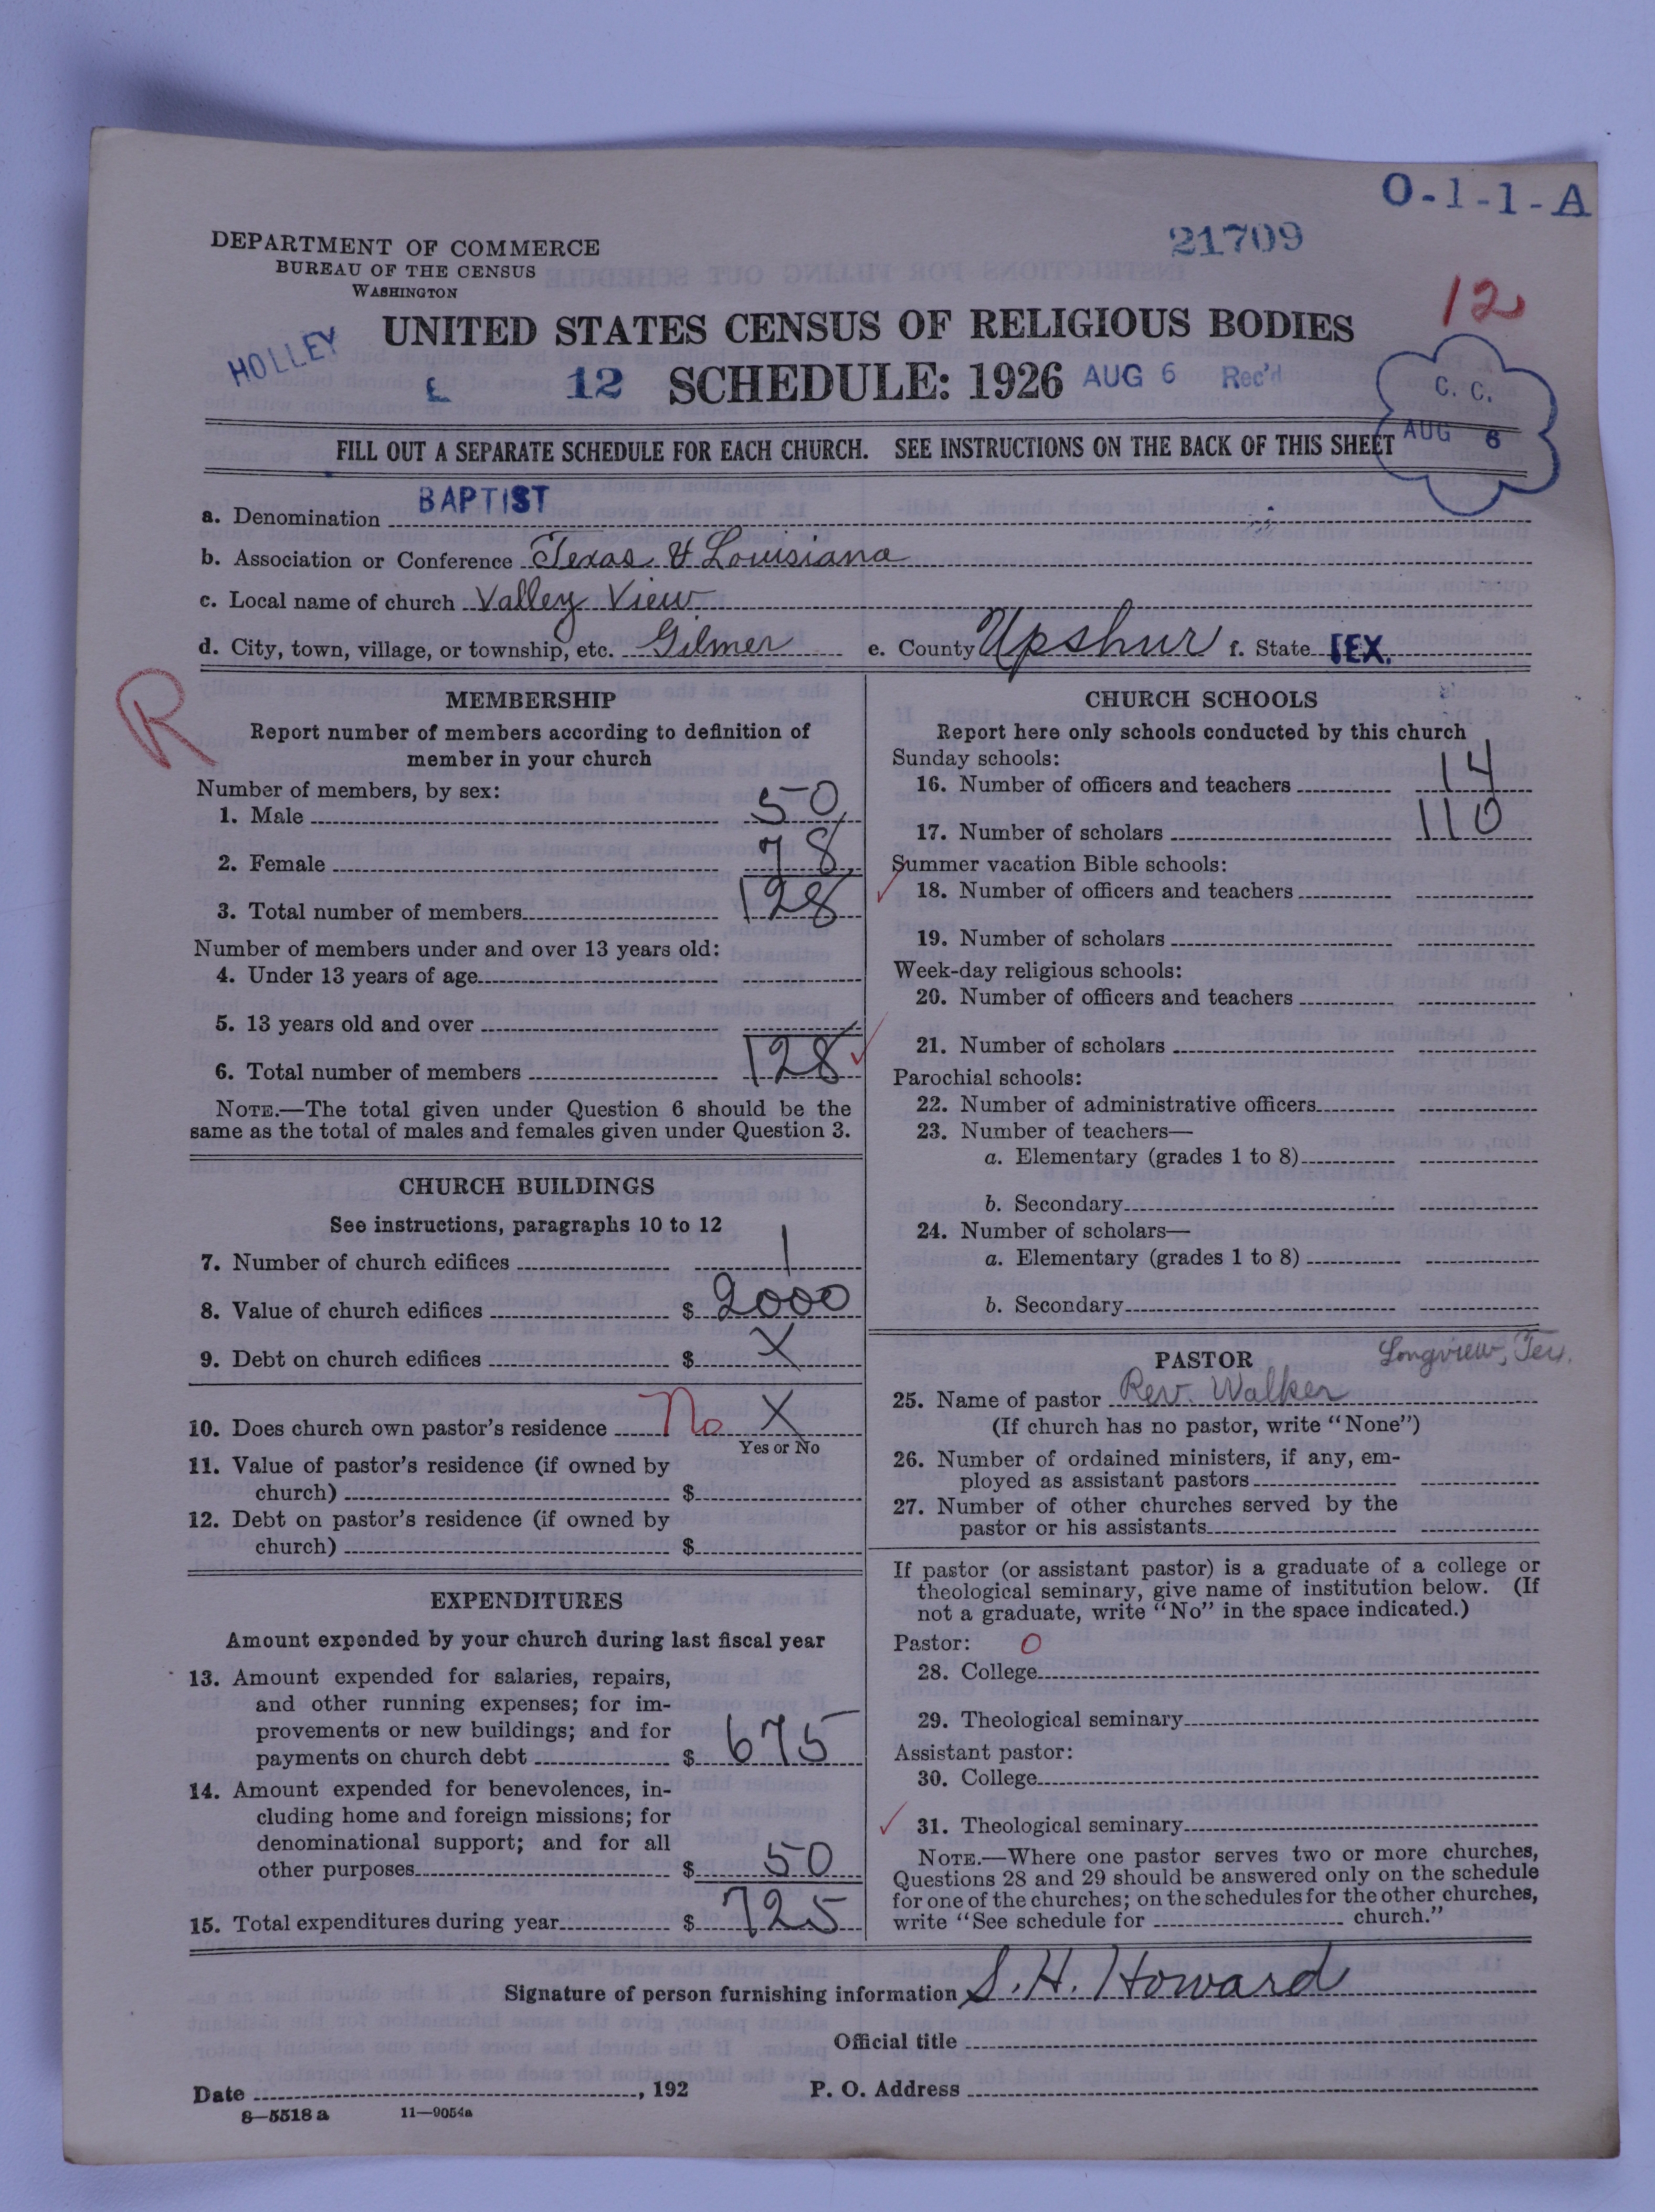 O-1-1-A
DEPARTMENT OF COMMERCE
BUREAU OF THE CENSUS
WASHINGTON
21709
12
UNITED STATES CENSUS OF RELIGIOUS BODIES
HOLLEY
12 SCHEDULE: 1926 AUG 6 Rec'd
C. C.
AUG 6
FILL OUT A SEPARATE SCHEDULE FOR EACH CHURCH. SEE INSTRUCTIONS ON THE BACK OF THIS SHEET
a. Denomination BAPTIST
b. Association or Conference Texas & Louisiana
c. Local name of church Valley View
d. City, town, village, or township, etc. Gilmer e. County Upshur f. State TEX.
R
MEMBERSHIP
Report number of members according to definition of
member in your church
Number of members, by sex:
1. Male 50
2. Female 78
3. Total number of members 128
Number of members under and over 13 years old:
4. Under 13 years of age
5. 13 years old and over
6. Total number of members 128
NOTE.—The total given under Question 6 should be the
same as the total of males and females given under Question 3.
CHURCH BUILDINGS
See instructions, paragraphs 10 to 12
7. Number of church edifices 1
8. Value of church edifices $ 2000
9. Debt on church edifices $ X
10. Does church own pastor's residence No X
Yes or No
11. Value of pastor's residence (if owned by
church) $
12. Debt on pastor's residence (if owned by
church) $
EXPENDITURES
Amount expended by your church during last fiscal year
13. Amount expended for salaries, repairs,
and other running expenses; for im-
provements or new buildings; and for
payments on church debt $ 675
14. Amount expended for benevolences, in-
cluding home and foreign missions; for
denominational support; and for all
other purposes $ 50
15. Total expenditures during year $ 725
CHURCH SCHOOLS
Report here only schools conducted by this church
Sunday schools:
16. Number of officers and teachers 14
17. Number of scholars 110
Summer vacation Bible schools:
18. Number of officers and teachers
19. Number of scholars
Week-day religious schools:
20. Number of officers and teachers
21. Number of scholars
Parochial schools:
22. Number of administrative officers
23. Number of teachers—
a. Elementary (grades 1 to 8)
b. Secondary
24. Number of scholars—
a. Elementary (grades 1 to 8)
b. Secondary
PASTOR Longview, Tex.
25. Name of pastor Rev. Walker
(If church has no pastor, write "None")
26. Number of ordained ministers, if any, em-
ployed as assistant pastors
27. Number of other churches served by the
pastor or his assistants
If pastor (or assistant pastor) is a graduate of a college or
theological seminary, give name of institution below. (If
not a graduate, write "No" in the space indicated.)
Pastor: 0
28. College
29. Theological seminary
Assistant pastor:
30. College
31. Theological seminary
NOTE.—Where one pastor serves two or more churches,
Questions 28 and 29 should be answered only on the schedule
for one of the churches; on the schedules for the other churches,
write "See schedule for church."
Signature of person furnishing information S. H. Howard
Official title
Date , 192 P. O. Address
8—5518 a 11—9054a